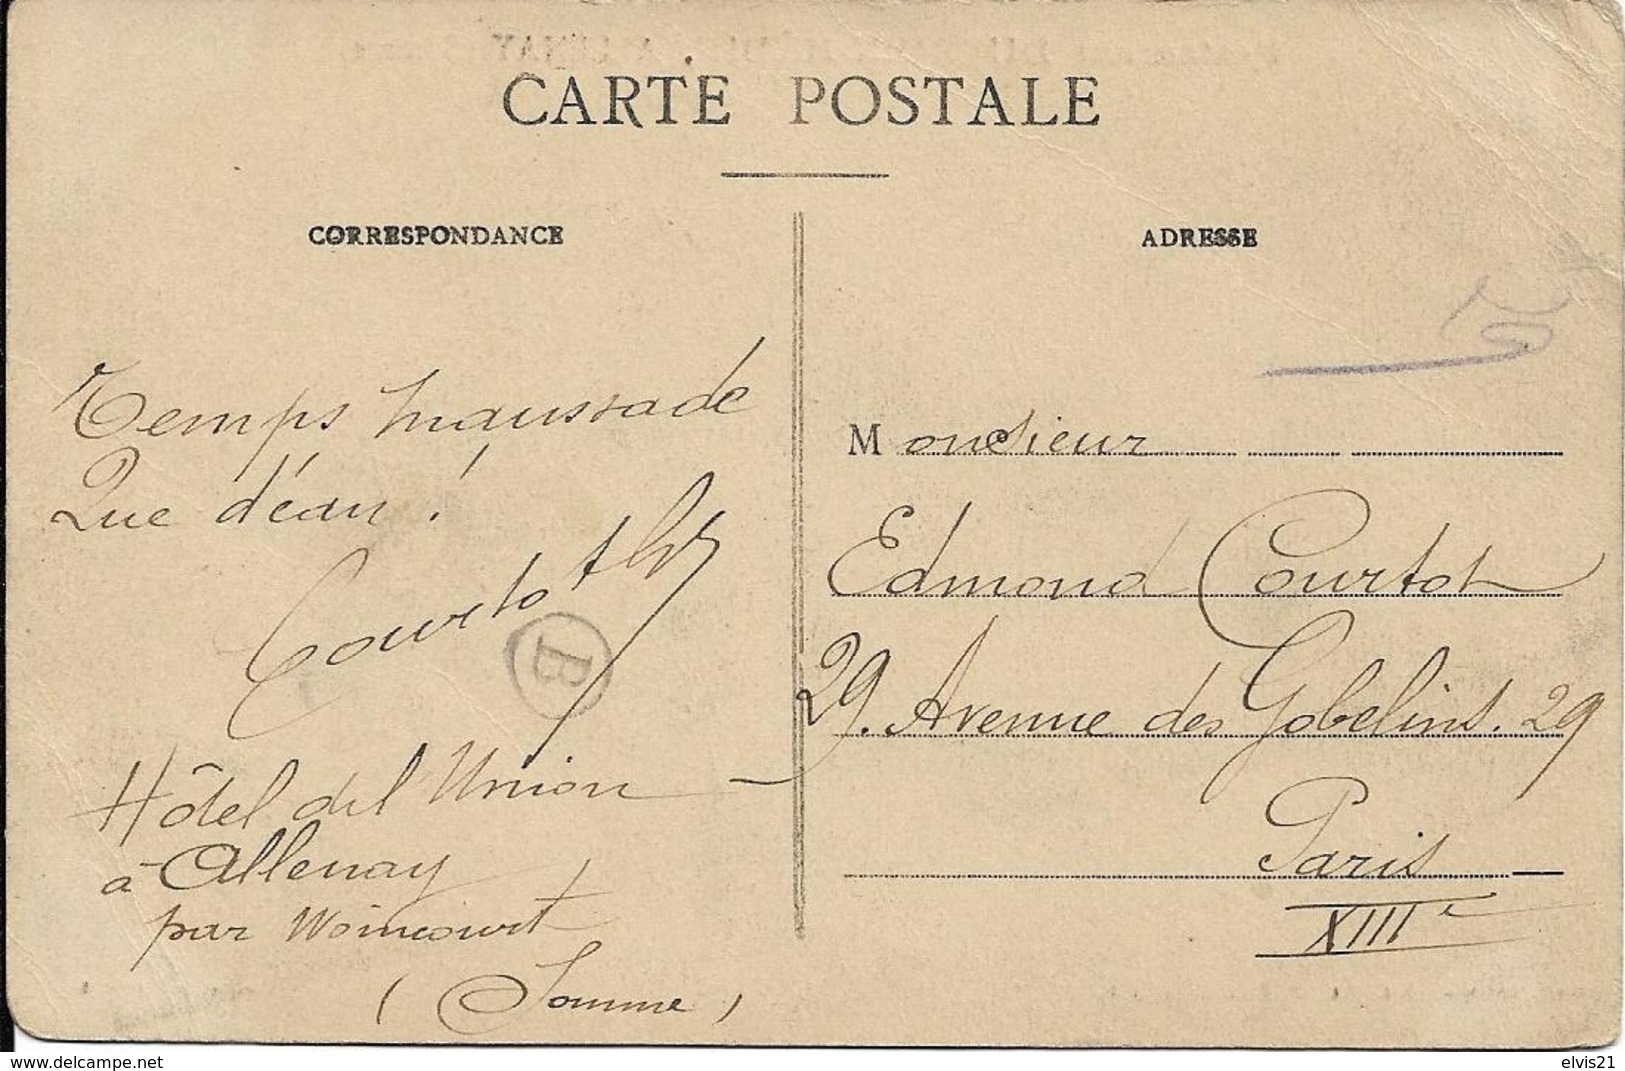 CARTE POSTALE
CORRESPONDANCE
Temps maussade
Que d'eau !
Courtot
B
Hôtel del Union
à Allenay
par Woincourt
(Somme)
ADRESSE
Monsieur
Edmond Courtot
29. Avenue des Gobelins. 29
Paris
XIIIe
www.delcampe.net
elvis21